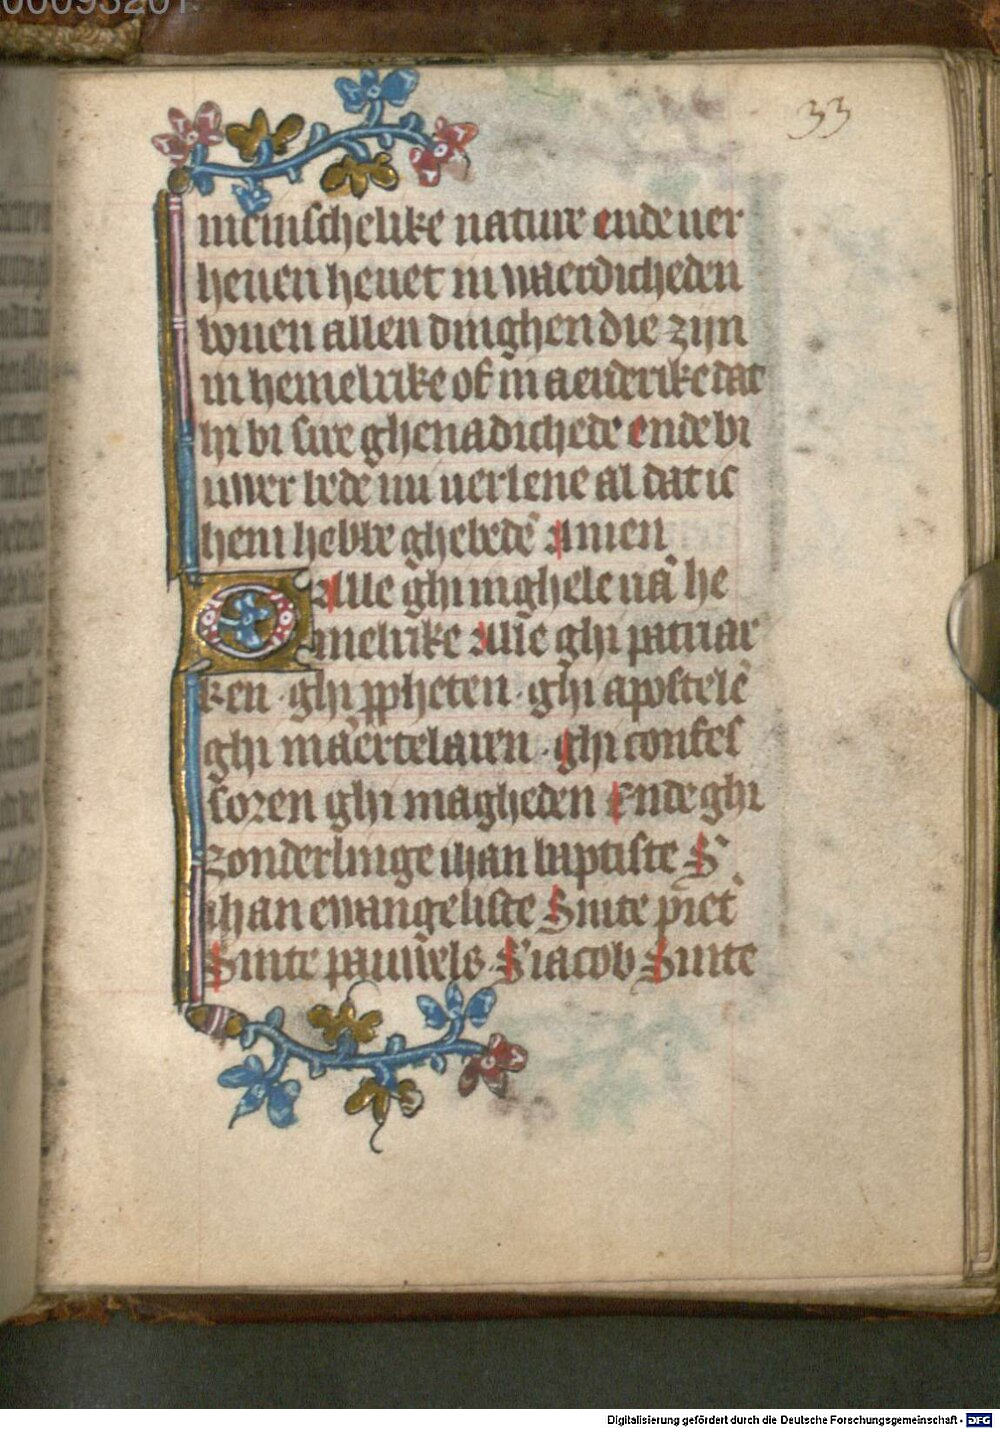 00093201
33
meinschelike nature ende ver
heuen heuet in waerdicheden
bouen allen dinghen die zijn
in hemelrike of in aerderike dat
hi bi sire ghenadichede ende bi
uwer bede mi verlene al dat ic
hem hebbe ghebedē Amen
O Alle ghi inghele uā he
melrike Alle ghi patriar
ken · ghi ꝓpheten · ghi apostelē
ghi maertelaren · ghi confes
soren ghi magheden Ende ghi
zonderlinge ihan baptiste S̄
ihan ewangeliste Sinte piet̄
Sinte pauwels · S̄ iacob Sinte
Digitalisierung gefördert durch die Deutsche Forschungsgemeinschaft - DFG